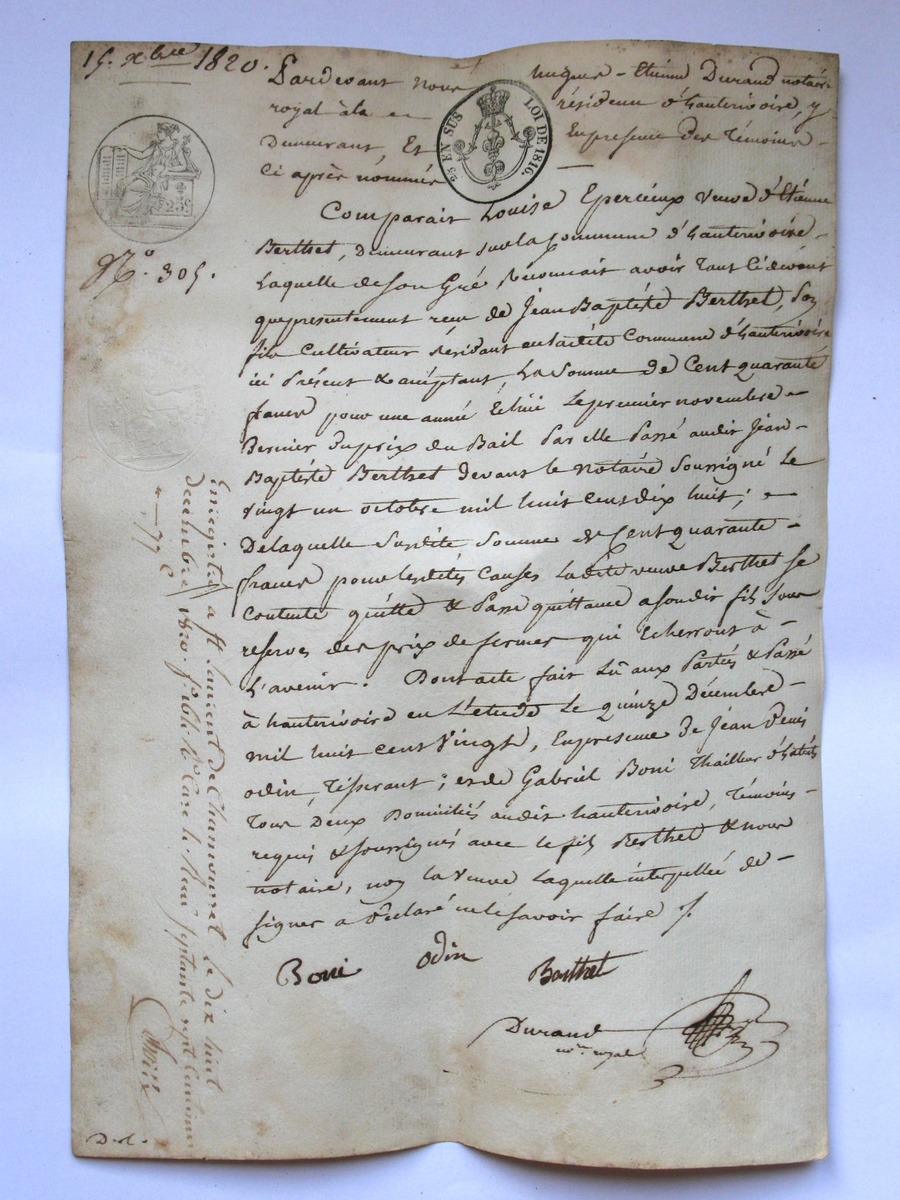 15. xbre 1820.
Pardevant Nous hugues - Etienne Durand notaire
royal à la résidence d'hauterivoire, y
demeurant, Et En presence des témoins
Ci après nommés
25 EN SUS LOI DE 1816.
25c
No. 305.
Comparait Louise Eperceux veuve d'Etienne
Berthet, demeurant sur la commune d'hauterivoire
Laquelle de son Gré Reconnait avoir tant Ci devant
que presentement reçu de Jean Baptiste Berthet, son
fils cultivateur Résidant en ladite Commune d'hauterivoire
ici Présent & acceptant, La Somme de Cent quarante
francs pour une année Echue Le premier novembre
Dernier du prix du Bail Par elle Passé audit Jean
Baptiste Berthet devant le notaire Soussigné Le
vingt un octobre mil huit cent dix huit;
De laquelle Susdite Somme de Cent quarante
francs pour lesdites Causes Ladite veuve Berthet se
contente quitte & Passe quittance a sondit fils sous
reserves des prix de fermes qui Echerront à
L'avenir. Dont acte fait Lu aux Parties & Passé
à hauterivoire en L'etude Le quinze Décembre
mil huit cent vingt, En presence de Jean denis
odin, Tisserant; et de Gabriel Boni Thailleur d'habits
Tous Deux Domiciliés audit hauterivoire, témoins
requis & soussignés avec le fils Berthet & nous
notaire, non la veuve Laquelle interpellée de
signer a déclaré ne le savoir faire ./.
Boni odin Berthet
Durand
nre. royal
Enregistré a st Laurent de Chamousset le dix huit
decembre 1820. Reçu septante sept centimes
77 c